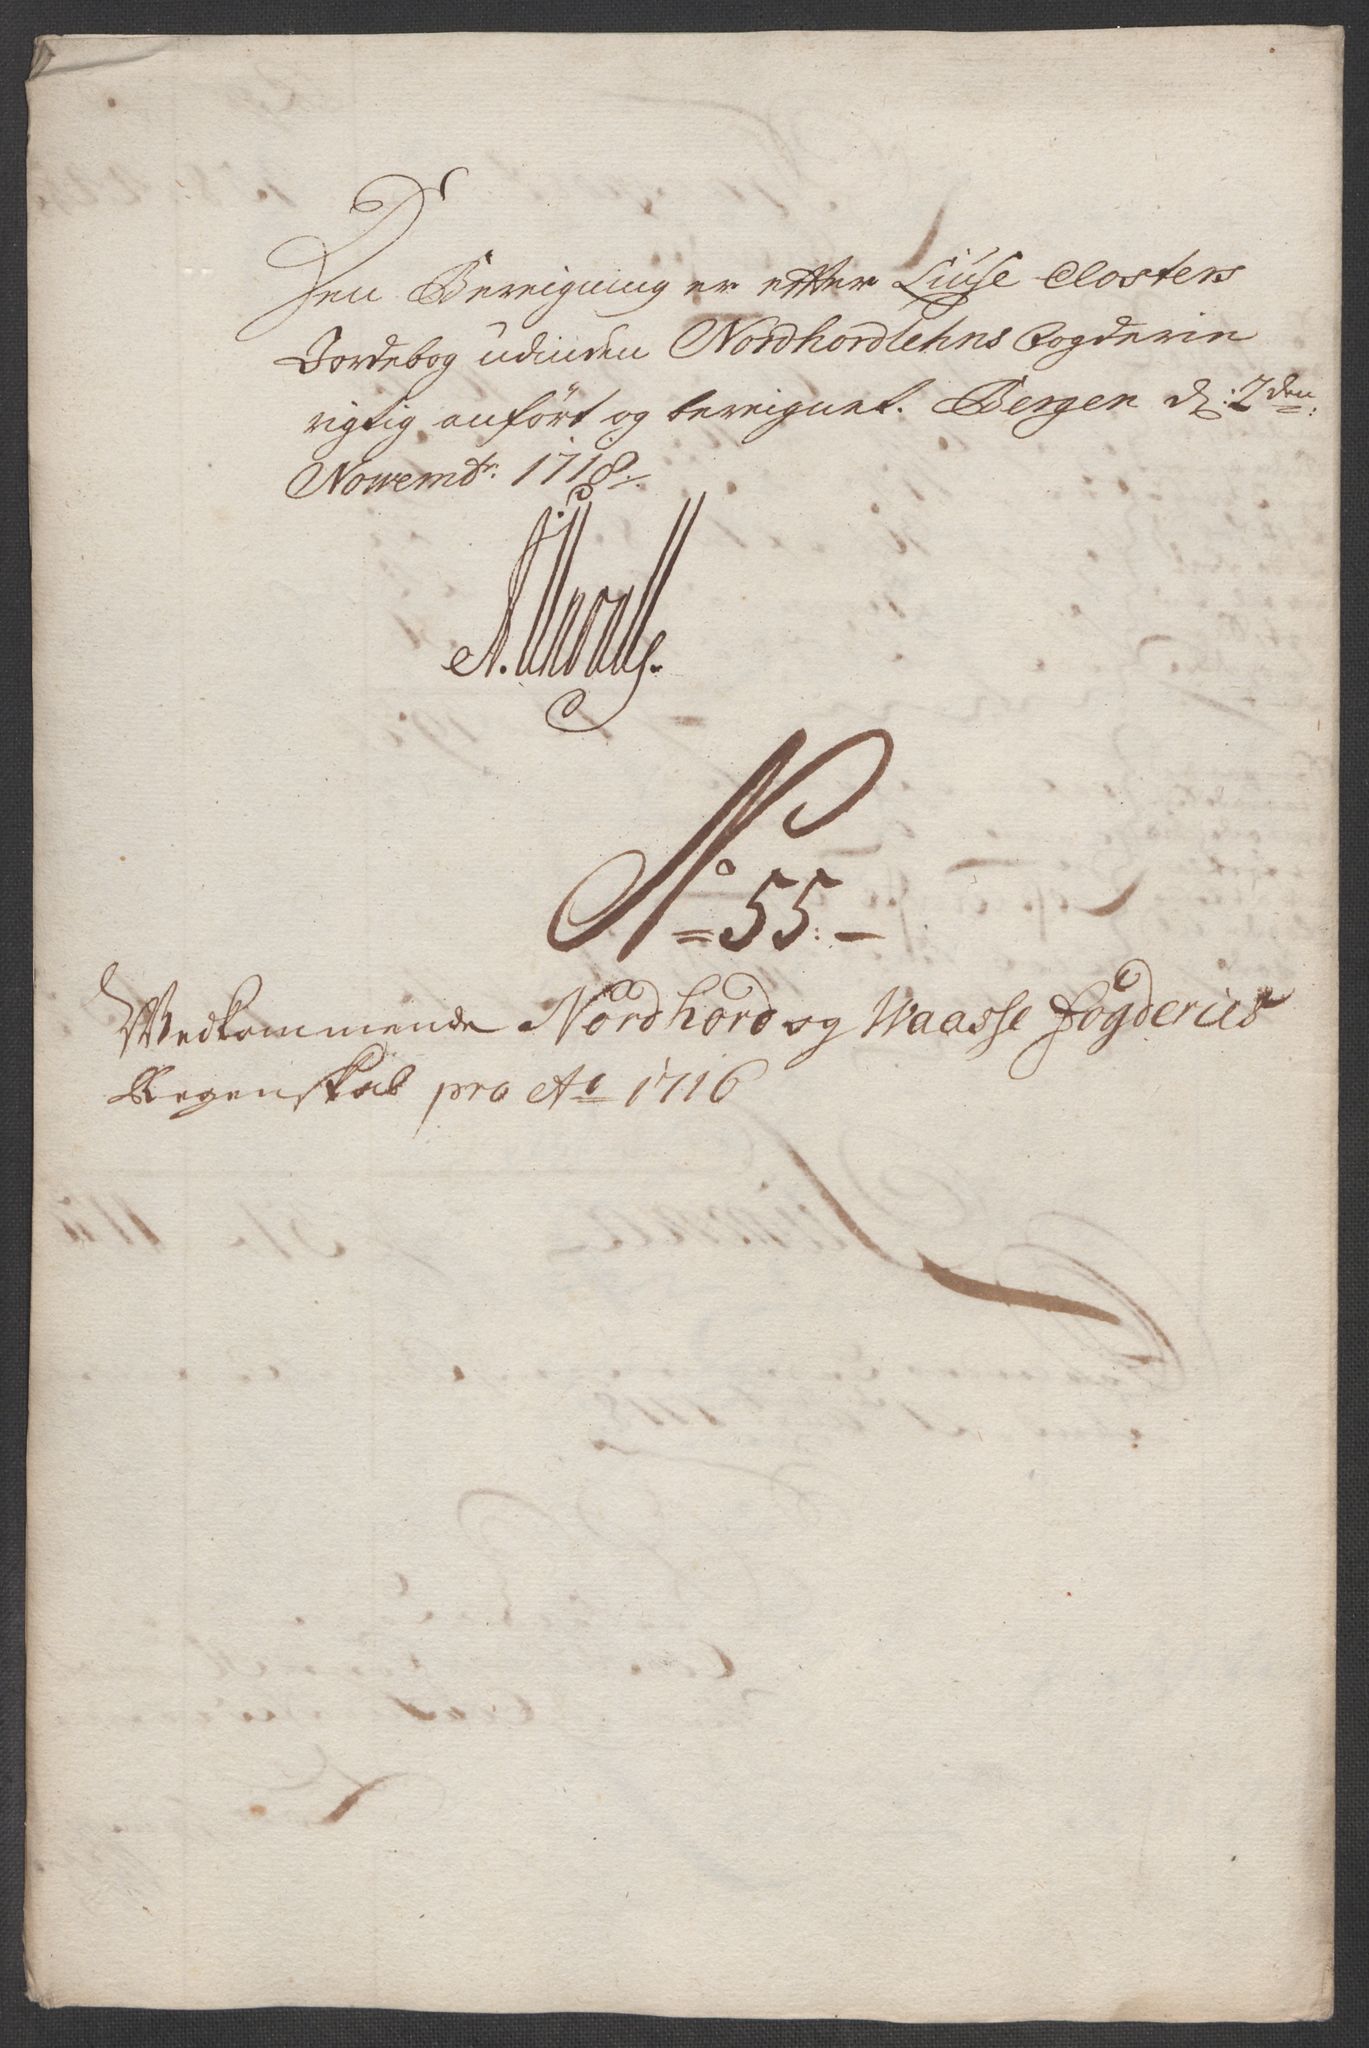 Den Bereigning er efter Liuse Closters
Jordebog udinden Nordhordlehns fogderie
rigtig anført og bereignet. Bergen d: 2den
Novembr: 1718.
No 55.
Vedkommende Nordhord og Waasse fogderies
Regenskab pro Ao 1716